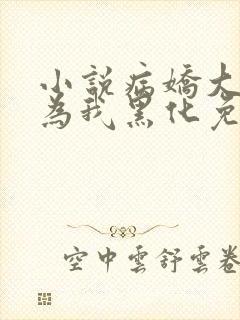 小說病嬌大
為我黑化免
空中雲舒雲卷